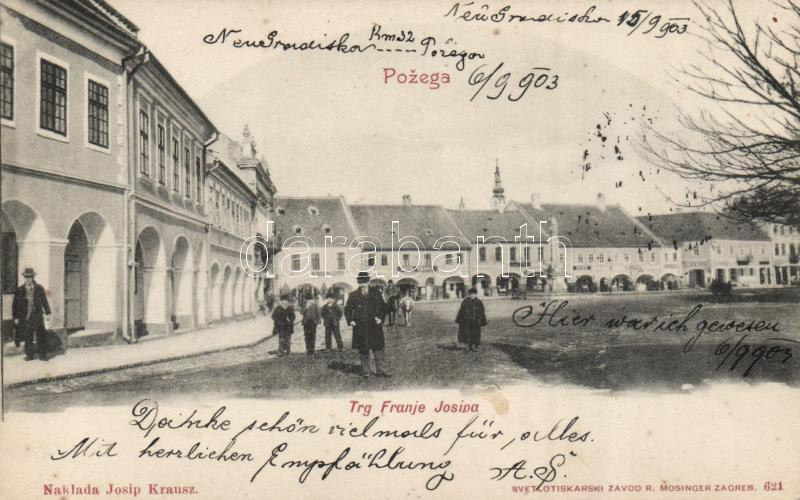 Neu Gradisko 15/9 903
Neu Gradisko Km 32 Požega
Požega
6/9 903
darabanth.com
Hier war ich gewesen
6/9 903
Trg Franje Josipa
Danke schön vielmals für, alles.
Mit herzlichen Empfählung A.S.
Naklada Josip Krausz.
SVETLOTISKARSKI ZAVOD R. MOSINGER ZAGREB. 621